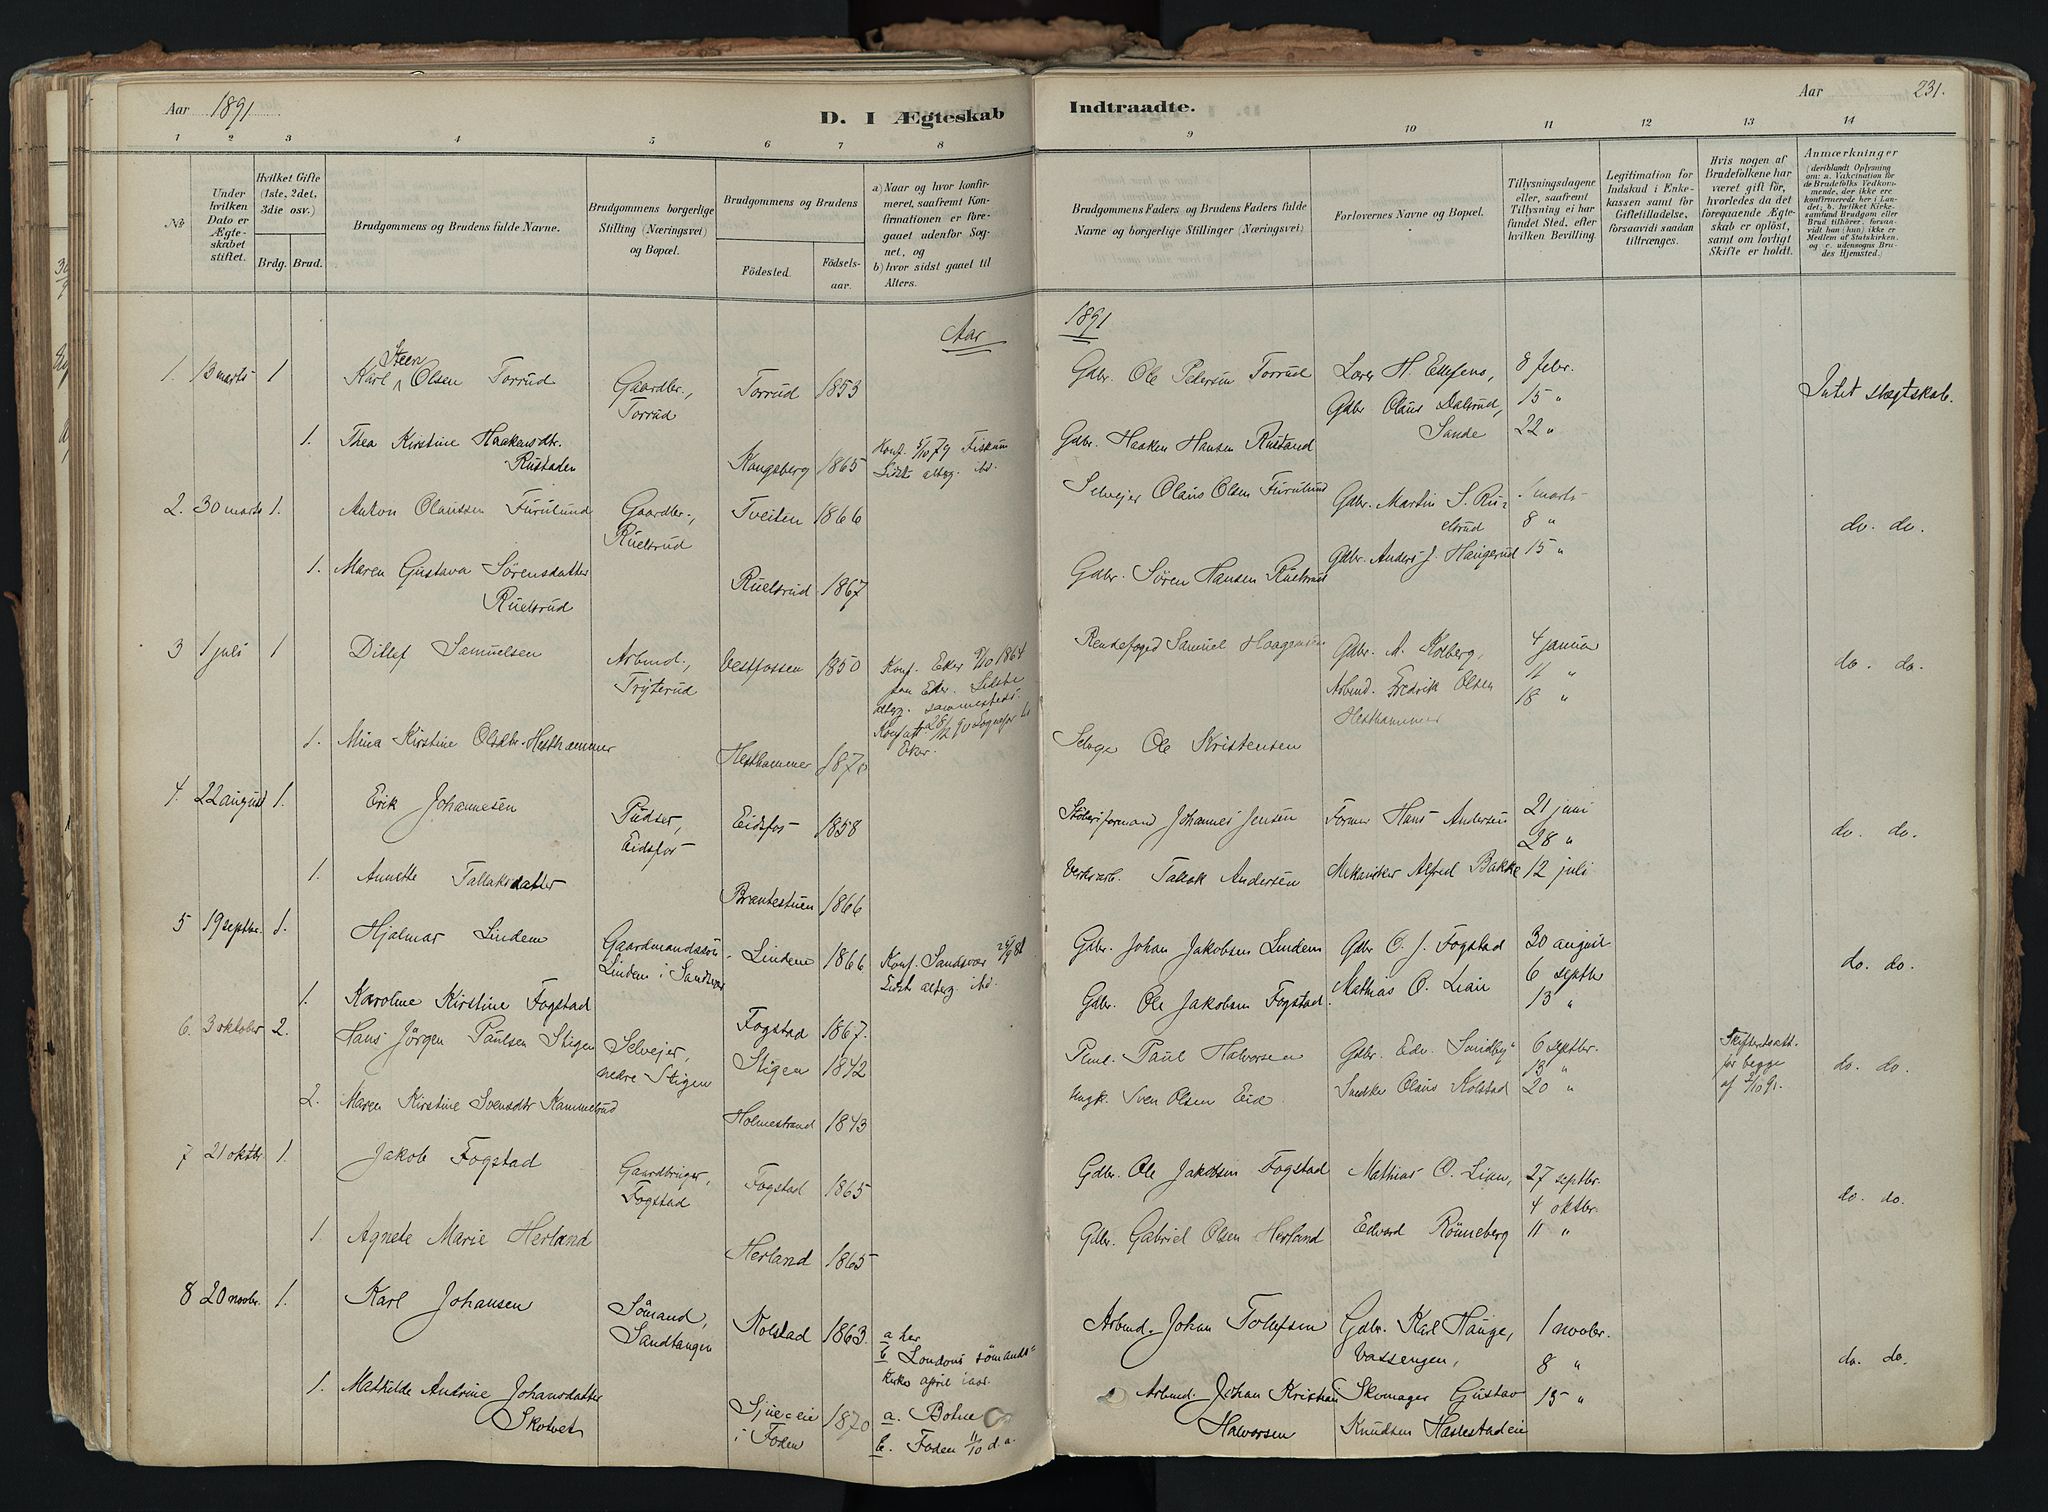 Aar 1891
D. I Ægteskab
Indtraadte.
Aar
231.
1 2 3 4 5 6 7 8
9 10 11 12 13 14
№
Under hvilken Dato er Ægteskabet stiftet.
Hvilket Gifte (1ste, 2det, 3die osv.)
Brdg. Brud.
Brudgommens og Brudens fulde Navne.
Brudgommens borgerlige Stilling (Næringsvei) og Bopæl.
Brudgommens og Brudens
Fødested.
Fødselsaar.
a) Naar og hvor konfirmeret, saafremt Konfirmationen er foregaaet udenfor Sognet, og
b) hvor sidst gaaet til Alters.
Brudgommens Faders og Brudens Faders fulde Navne og borgerlige Stillinger (Næringsvei)
Forlovernes Navne og Bopæl.
Tillysningsdagene eller, saafremt Tillysning ei har fundet Sted, efter hvilken Bevilling.
Legitimation for Indskud i Enkekassen samt for Giftetilladelse, forsaavidt saadan tiltrænges.
Hvis nogen af Brudefolkene har været gift før, hvorledes da det foregaaende Ægteskab er opløst, samt om lovligt Skifte er holdt.
Anmærkninger (deriblandt Oplysning om: a. Vakcination for de Brudefolks Vedkommende, der ikke ere konfirmerede her i Landet; b. hvilket Kirkesamfund Brudgom eller Brud tilhører, forsaavidt han (hun) ikke er Medlem af Statskirken, og c. udensogns Brudes Hjemsted.)
Aar
1891
1. 13 marts 1 Karl Steen Olsen Torrud Gaardbr., Torrud Torrud 1853
Gdbr. Ole Pedersen Torrud Lærer H. Ellefsens, 8 febr.
Gdbr Olaus Dalsrud, Sande 15 "
22 "
Intet slægtskab.
1. Thea Kirstine Haakensdtr. Rustaden Kongsberg 1865 Konf. 5/10 79 Fiskum
Sidst alterg. ibd.
Gdbr. Haaken Hansen Rustand
2. 30 marts 1. Anton Olaussen Furulund Gaardbr., Ruelsrud Tveiten 1866
Selvejer Olaus Olsen Furulund Gdbr. Martin S. Ruelsrud 1 marts
8 "
do. do.
1. Maren Gustava Sörensdatter Ruelsrud Ruelsrud 1867
Gdbr. Sören Hansen Ruelsrud Gdbr. Anders J. Haugerud 15 "
3 1 juli 1 Ditlef Samuelsen Arbmd., Tryterud Vestfossen 1850 Konf. Eker 9/10 1864
Samuel Haagensen Gdbr. A. Kolberg, 4 januar
Arbmd. Fredrik Olsen Hesthammer 11 "
18 "
do. do.
1. Mina Kirstine Olsdtr. Hesthammer Hesthammer 1870
Ole Kristensen
4. 22 august 1. Erik Johannesen Pudser, Eidsfos Eidsfos 1858
Støberiformand Johannes Jensen Former Hans Andersen 21 juni
28 "
do. do.
1. Annette Tallaksdatter 1866
Tallak Andersen Mekaniker Alfred Bakke 12 juli
5 19 septbr. 1. Hjalmar Lindem Gaardmandssön Lindem i Sandsvær Lindem 1866 Konf. Sandsvær
Sidst alterg. ibd.
Gdbr. Johan Jakobsen Lindem Gdbr O. J. Fogstad 30 august
6 septbr
13 "
do. do.
1. Karoline Kirstine Fogstad Fogstad 1867.
Gdbr. Ole Jakobsen Fogstad. Mathias O. Lian
6. 3 oktober 2. Hans Jörgen Paulsen Stigen Selvejer, nedre Stigen Stigen 1842
Paul Halvorsen Gdbr. Edv. Sundby 6 septbr.
13 "
Skifteattest for begge af 2/10 91.
do. do.
2. Maren Kirstine Svensdtr Kammelrud Holmestrand 1843
Sven Olsen Eid. Snedker Olaus Kolstad 20 "
7 21 oktbr. 1. Jakob Fogstad Gaardbruger, Fogstad Fogstad 1865
Gdbr. Ole Jakobsen Fogstad Mathias O. Lian, 27 septbr.
4 oktbr.
do. do.
1. Agnete Marie Herland Herland 1865
Gdbr. Gabriel Olsen Herland Edvard Rönneberg 11 "
8 20 novbr. 1. Karl Johansen Sömand, Sandtangen Kolstad 1863. a her
b Londons sömandskirke april iaar.
Arbmd. Johan Tollefsen Gdbr. Karl Hauge, Vassengen, 1 novbr.
8 "
do. do.
1. Mathilde Andrine Johansdatter Skotvet i Foden 1870 a. Botne
b. Foden 11/10 d. a.
Arbmd. Johan Kristian Halvorsen Skomager Gustav Knudsen Haslestadeie 15 "